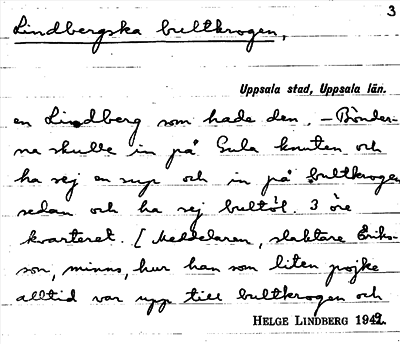 3
Lindbergska bultkrogen,
Uppsala stad, Uppsala län.
en Lindberg som hade den. – Bönder-
na skulle in på Gula knuten och
ha sej en sup och in på bultkrogen
sedan och ha sej bultöl. 3 öre
kvarteret. [Meddelaren, slaktare Eriks-
son, minns, hur han som liten pojke
alltid var upp till bultkrogen och
HELGE LINDBERG 1942.